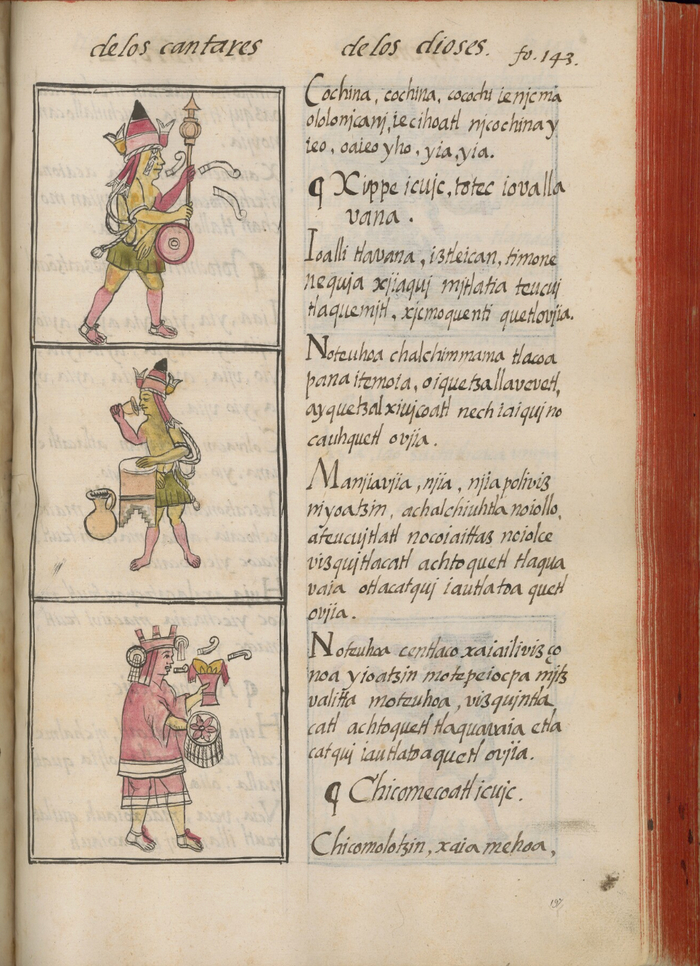 de los cantares de los dioses. fo. 143.
Cochina, cochina, cocochi ie nicma
ololonicani, ie cihoatl nicochina y
ieo, oaieo yho, yia, yia.
¶ Xippe icuic, totec iovalla
vana.
Ioalli tlavana, iztleican, timone
nequia xjiaqui mjtlatia teucuj
tlaquemjtl, xicmoquenti quetlovjia.
Noteuhoa chalchimmama tlacoa
pana itemoia, oiquetzallavevetl,
ay quetzal xivicoatl nech iaiqui no
cauhquetl ovjia.
Manjiavjia, njia, njia poliviz
niyoatzin, achalchiuhtla noiollo,
ateucuitlatl nocoiaittaz noiolce
vizquitlacatl achtoquetl tlaqua
vaia otlacatqui iautlatoa quetl
ovjia.
Noteuhoa centlaco xaiailiviz ço
noa yioatzin motepeiocpa mitz
valitta moteuhoa, vizquintla
catl achtoquetl tlaquavaia etla
catqui iautlatoaquetl ovjia.
¶ Chicomecoatl icuic.
Chicomolotzin, xaia mehoa,